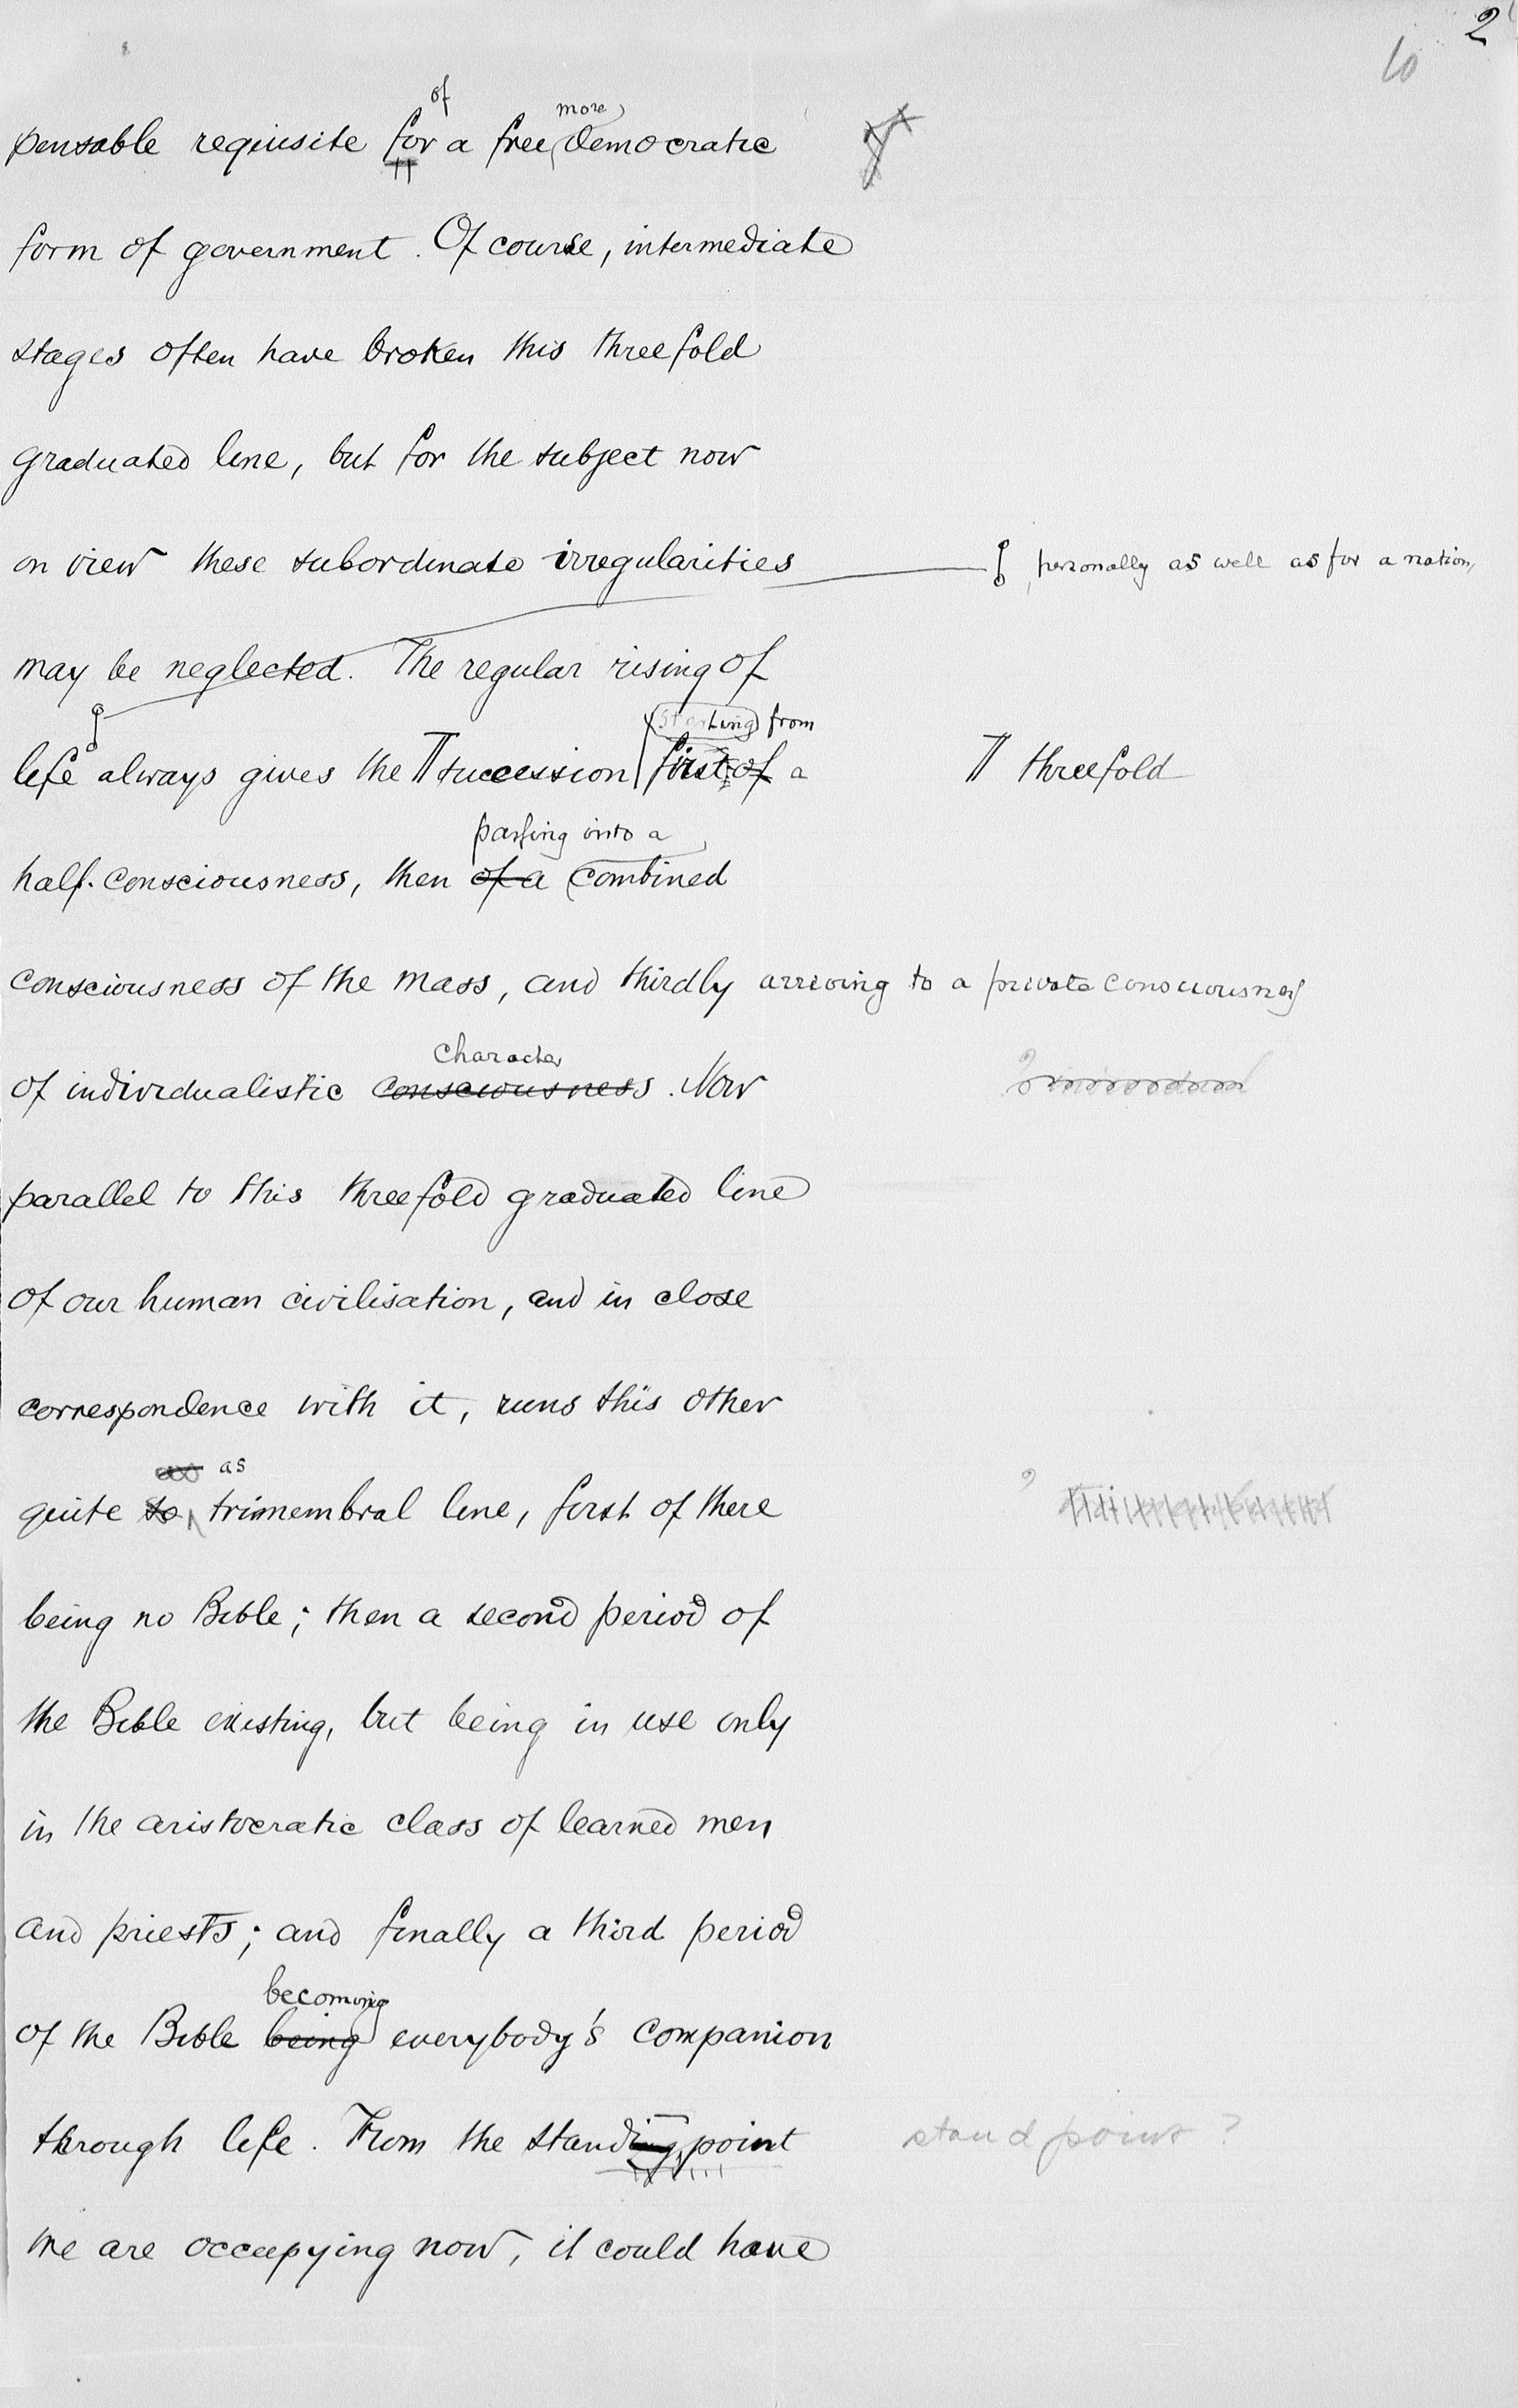 2
10
of more
pensable requisite for a free democratic
form of government. Of course, intermediate
stages often have broken this threefold
graduated line, but for the subject now
on view these subordinate irregularities
personally as well as for a nation,
may be neglected. The regular rising of
starting from
life always gives the succession first of a
threefold
passing into a
half-consciousness, then of a combined
consciousness of the mass, and thirdly arriving to a private consciousness
character
of individualistic consciousness. Now
parallel to this threefold graduated line
of our human civilisation, and in close
correspondence with it, runs this other
as
quite so trimembral line, first of there
being no Bible; then a second period of
the Bible existing, but being in use only
in the aristocratic class of learned men
and priests; and finally a third period
becoming
of the Bible being everybody's companion
through life. From the standing point
stand point?
we are occupying now, it could have